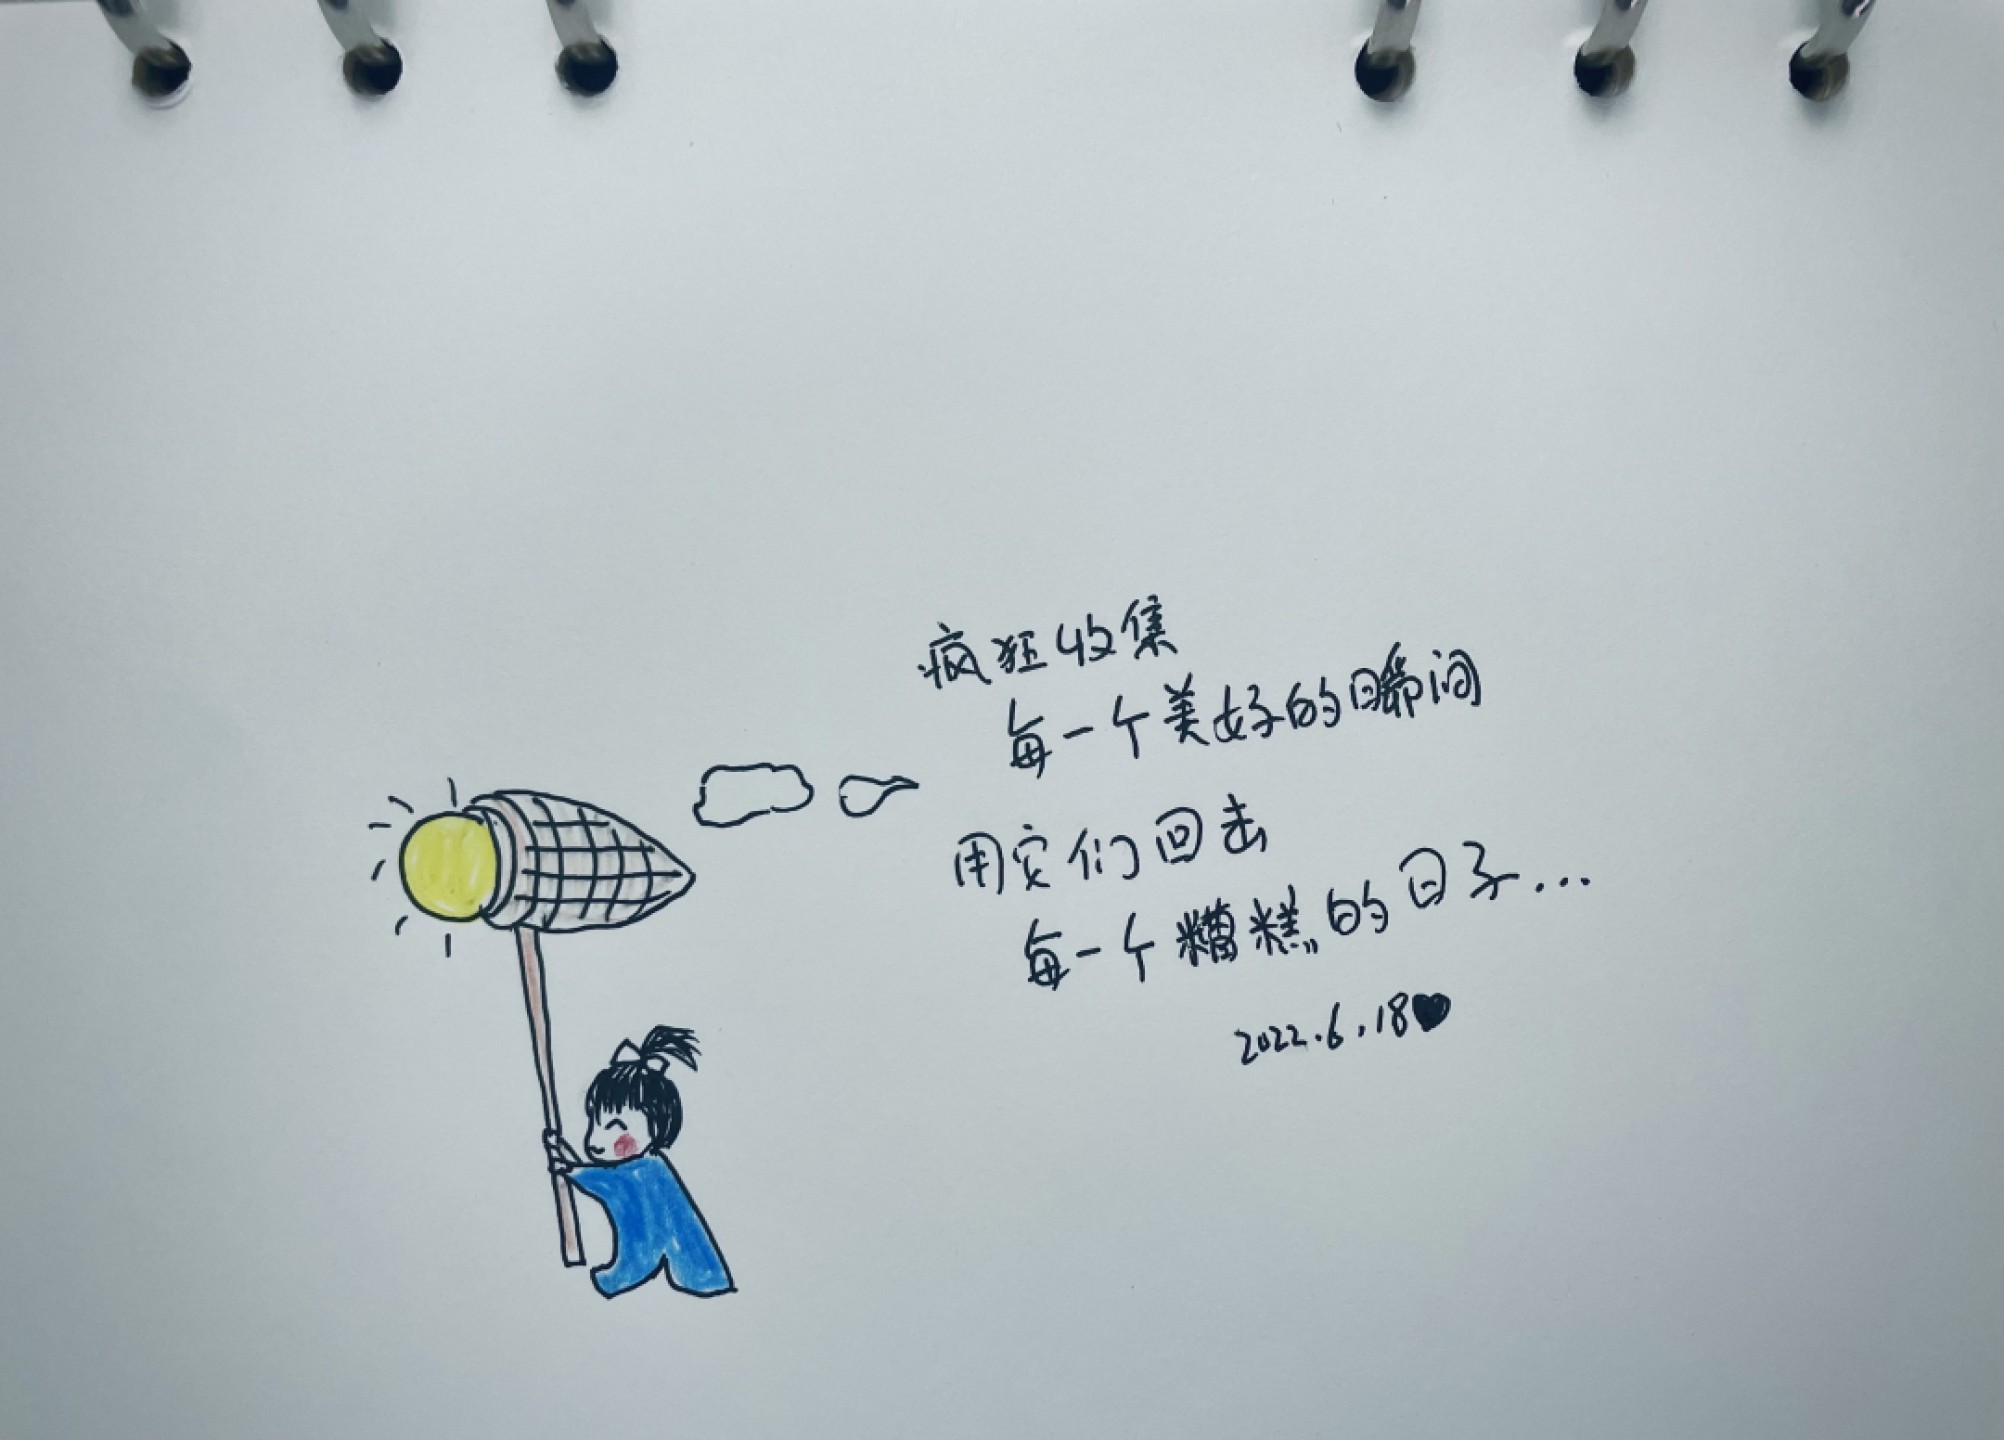 疯狂收集
每一个美好的瞬间
用它们回击
每一个糟糕的日子...
2022.6.18♥